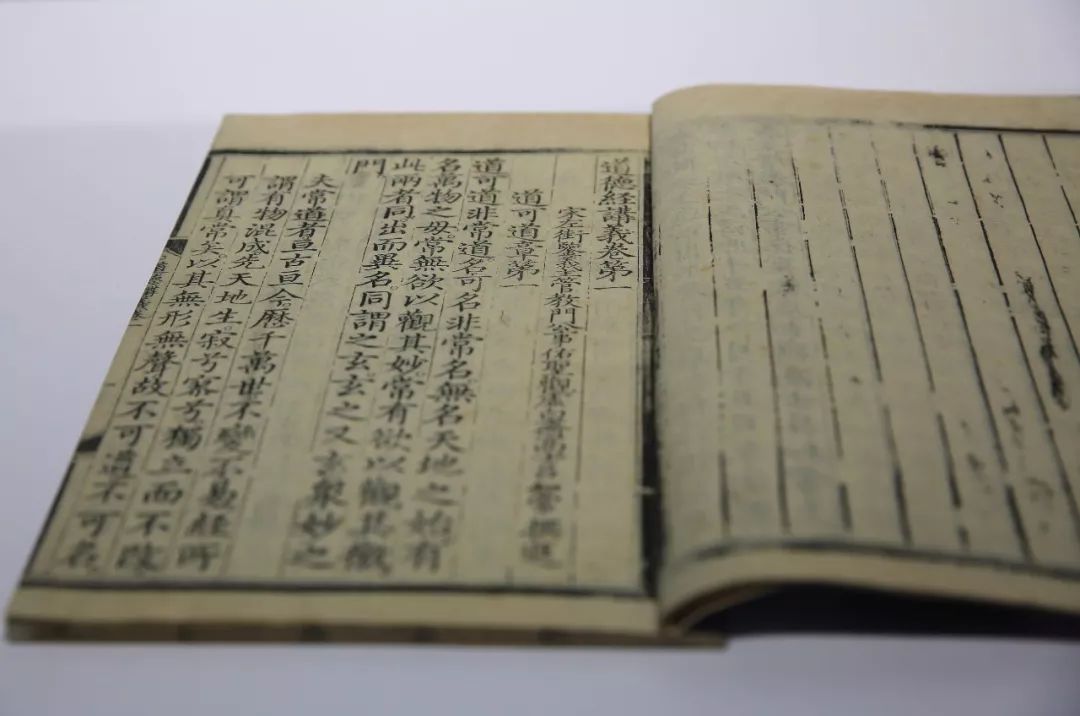 道德經講義卷第一
宋左街鑒義主管教門公事佑聖觀虛白齋高士撰進
道可道章第一
道可道非常道名可名非常名無名天地之始有
名萬物之母常無欲以觀其妙常有欲以觀其徼
此兩者同出而異名同謂之玄玄之又玄衆妙之
門
夫常道者亘古亘今歷千萬世不變不易經所
謂有物混成先天地生寂兮寥兮獨立而不改
可謂真常矣以其無形無聲故不可道不可名